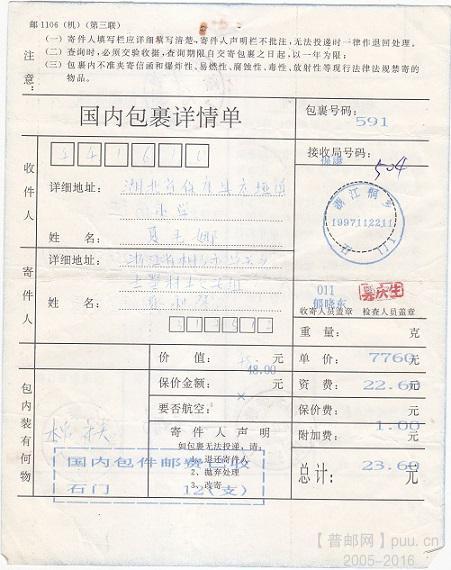 邮1106（机）（第三联）
注意：
（一）寄件人填写栏应详细填写清楚，寄件人声明栏不批注，无法投递时一律作退回处理。
（二）查询时，必须交验收据，查询期限自交寄包裹之日起，以一年为限；
（三）包裹内不准夹寄信函和爆炸性、易燃性、腐蚀性、毒性、放射性等现行法律法规禁寄的物品。
国内包裹详情单
包裹号码：
591
接收局号码：
504
收件人
详细地址：
小学
姓 名：
夏玉娜
浙江桐乡
1997112211
寄件人
详细地址：
姓 名：
011
收寄人员盖章 检查人员盖章
重 量： 克
包内装有何物
价 值： 元
48.00
保价金额： 元
要否航空： ×
单 价： 7760 元
资 费： 22.60 元
保价费： 元
附加费： 1.00 元
总计： 23.60 元
寄件人声明
如包裹无法投递，请：
1、退还寄件人
2、抛弃处理
3、改寄
国内包件邮资已收
石门 12(支)
【普邮网】puu.cn
2005-2016